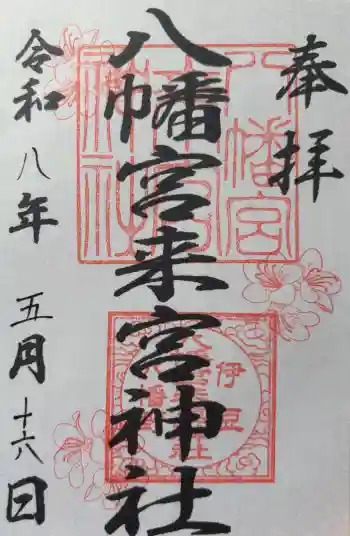 奉拝
八幡宮来宮神社
令和八年五月十六日